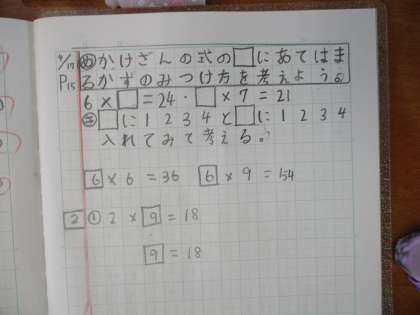 4/17 め かけざんの式の□にあてはま
P15 るかずのみつけ方を考えよう。
6×□=24・□×7=21
㋯ □に1234と□に1234
入れてみて考える。
6×6=36 6×9=54
2 ① 2×9=18
9=18